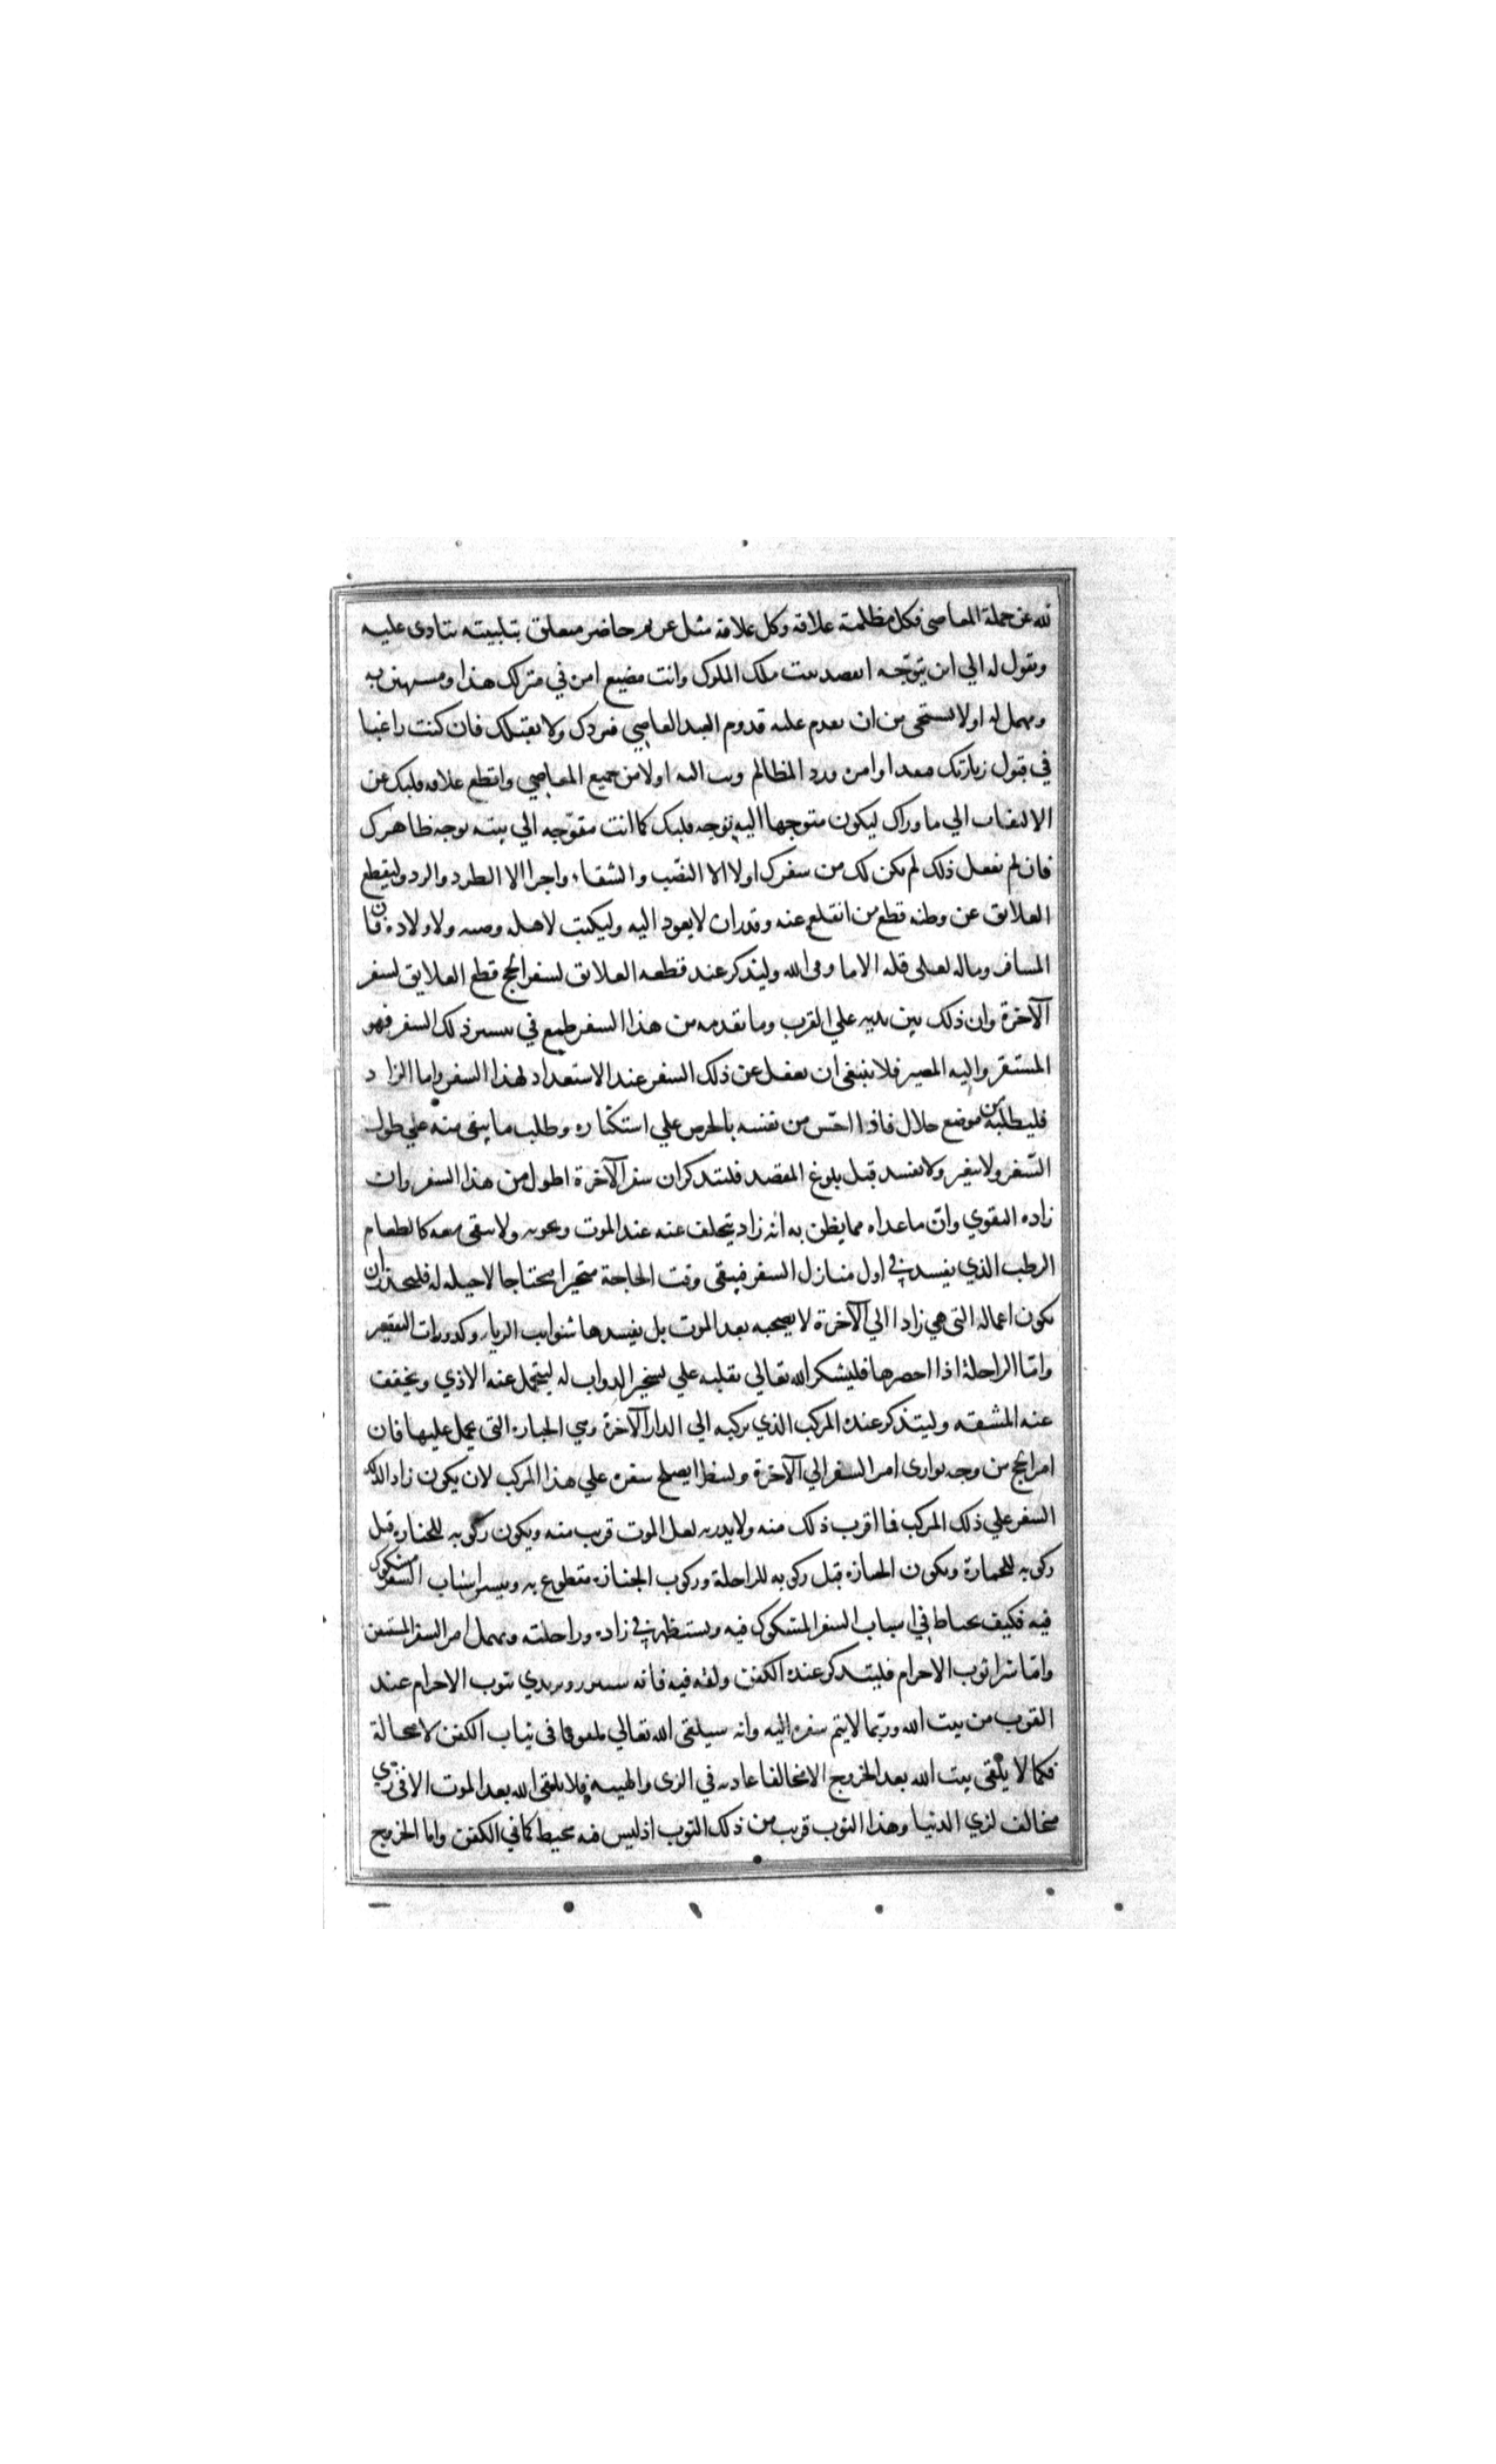 لله عن جملة المعاصي فكل مظلمة علاقة وكل علاقة مثل غريم حاضر متعلق بتلبيبه ينادى عليه
ويقول له الي اين تتوجه اتقصد بيت ملك الملوك وانت مضيع امره في منزلك هذا ومستهين به
ومهمل له اولا تستحي من ان تقدم عليه قدوم العبد العاصي فيردك ولا يقبلك فان كنت راغبا
في قبول زيارتك اوامره ورد المظالم وتب اليه اولا من جميع المعاصي واقطع علاقة قلبك عن
الالتفات الي ما وراك ليكون متوجها اليه بوجه قلبك كما انت متوجه الي بيته بوجه ظاهرك
فان لم تفعل ذلك لم يكن لك من سفرك اولا الا النصب والشقاء واخرا الا الطرد والرد وليقطع
العلايق عن وطنه قطع من انقلع عنه وقدر ان لا يعود اليه وليكتب لاهله وصيته ولاولاده فان
المسافر وماله لعلى قلة الا ما وقى الله وليتذكر عند قطعه العلايق لسفر الحج قطع العلايق لسفر
الآخرة وان ذلك بين يديه علي القرب وما تقدمه من هذا السفر طمع في تيسير ذلك السفر فهو
المستقر واليه المصير فلا ينبغي ان يغفل عن ذلك السفر عند الاستعداد لهذا السفر واما الزاد
فليطلبه من موضع حلال فاذا احس من نفسه بالحرص علي استكثاره وطلب ما يبقى منه علي طول
السفر ولا يتغير ولا يفسد قبل بلوغ المقصد فليتذكر ان سفر الآخرة اطول من هذا السفر وان
زاده التقوي وان ما عداه مما يظن به انه زاد يتخلف عنه عند الموت ويخونه ولا يبقى معه كالطعام
الرطب الذي يفسد في اول منازل السفر فيبقى وقت الحاجة متحيرا محتاجا لا حيلة له فليحذر ان
يكون اعماله التي هي زادا الي الآخرة لا يصحبه بعد الموت بل يفسدها شوايب الريا وكدورات التقصير
واما الراحلة اذا احضرها فليشكر الله تعالي بقلبه علي تسخير الدواب له ليتحمل عنه الاذي ويخفف
عنه المشقة وليتذكر عنده المركب الذي يركبه الي الدار الآخرة وهي الجنازة التي يحمل عليها فان
امر الحج من وجه يوازى امر السفر الي الآخرة ولينظر ايصلح سفره علي هذا المركب لان يكون زادا لذلك
السفر علي ذلك المركب فما اقرب ذلك منه ولا يدريه لعل الموت قريب منه ويكون ركوبه للجنازة قبل
ركوبه للجمازة ويكون الجنازة قبل ركوبه للراحلة وركوب الجنازة مقطوع به وتيسر اسباب السفر مشكوك
فيه فكيف يحتاط في اسباب السفر المشكوك فيه ويستظهر في زاده وراحلته ويهمل امر السفر المستيقن
واما شرا ثوب الاحرام فليتذكر عنده الكفن ولفه فيه فانه ويرتدي بثوب الاحرام عند
القرب من بيت الله وربما لا يتم سفره اليه وانه سيلقى الله تعالي ملفوفا في ثياب الكفن لا محالة
فكما لا يلقى بيت الله بعد الخروج الا مخالفا عادته في الزى والهيبة فلا يلقى الله بعد الموت الا في زي
مخالف لزي الدنيا وهذا الثوب قريب من ذلك الثوب اذ ليس فيه مخيط كما في الكفن واما الخروج